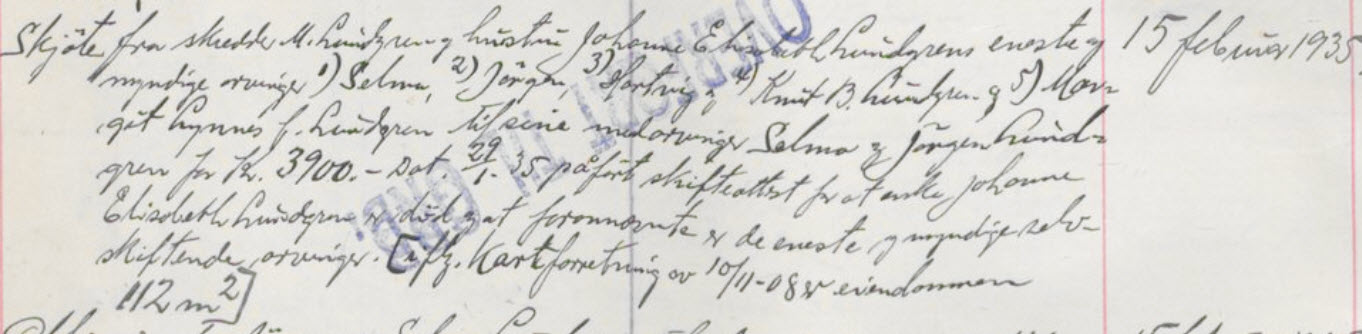 Skjöte fra skredder M. Lundgren og hustru Johanne Elisabeth Lundgrens eneste og 15 februar 1935.
myndige arvinger 1) Selma, 2) Jörgen, 3) Hartvig og 4) Knut B. Lundgren og 5) Mar-
got Lynnes f. Lundgren til sine medarvinger Selma og Jörgen Lund-
gren for kr. 3900.- Dat. 29/1-35 påfört skifteattest for at enke Johanne
Elisabeth Lundgren er död og at forannevnte er de eneste og myndige selv-
skiftende arvinger. [Iflg. Kartforretning av 10/11-08 er eiendommen
112 m2]
OVERFÖRT TIL